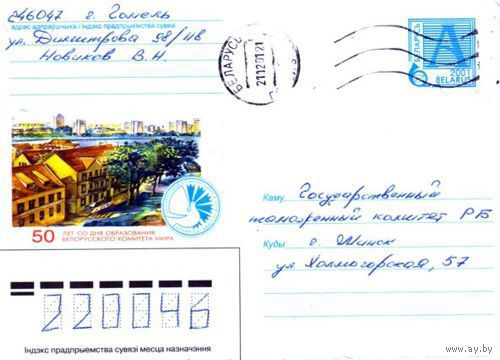 246047 г. Гомель
адрас адпраўшчыка і індэкс прадпрыемства сувязі
ул. Димитрова 98/48
Новиков В.Н.
БЕЛАРУСЬ
211201 21
А
БЕЛАРУСЬ
2001
BELARUS
50 ЛЕТ СО ДНЯ ОБРАЗОВАНИЯ
БЕЛОРУССКОГО КОМИТЕТА МИРА
Каму Государственный
таможенный комитет РБ
Куды г. Минск
ул Холмогорская, 57
220046
Індэкс прадпрыемства сувязі месца назначэння
www.ay.by